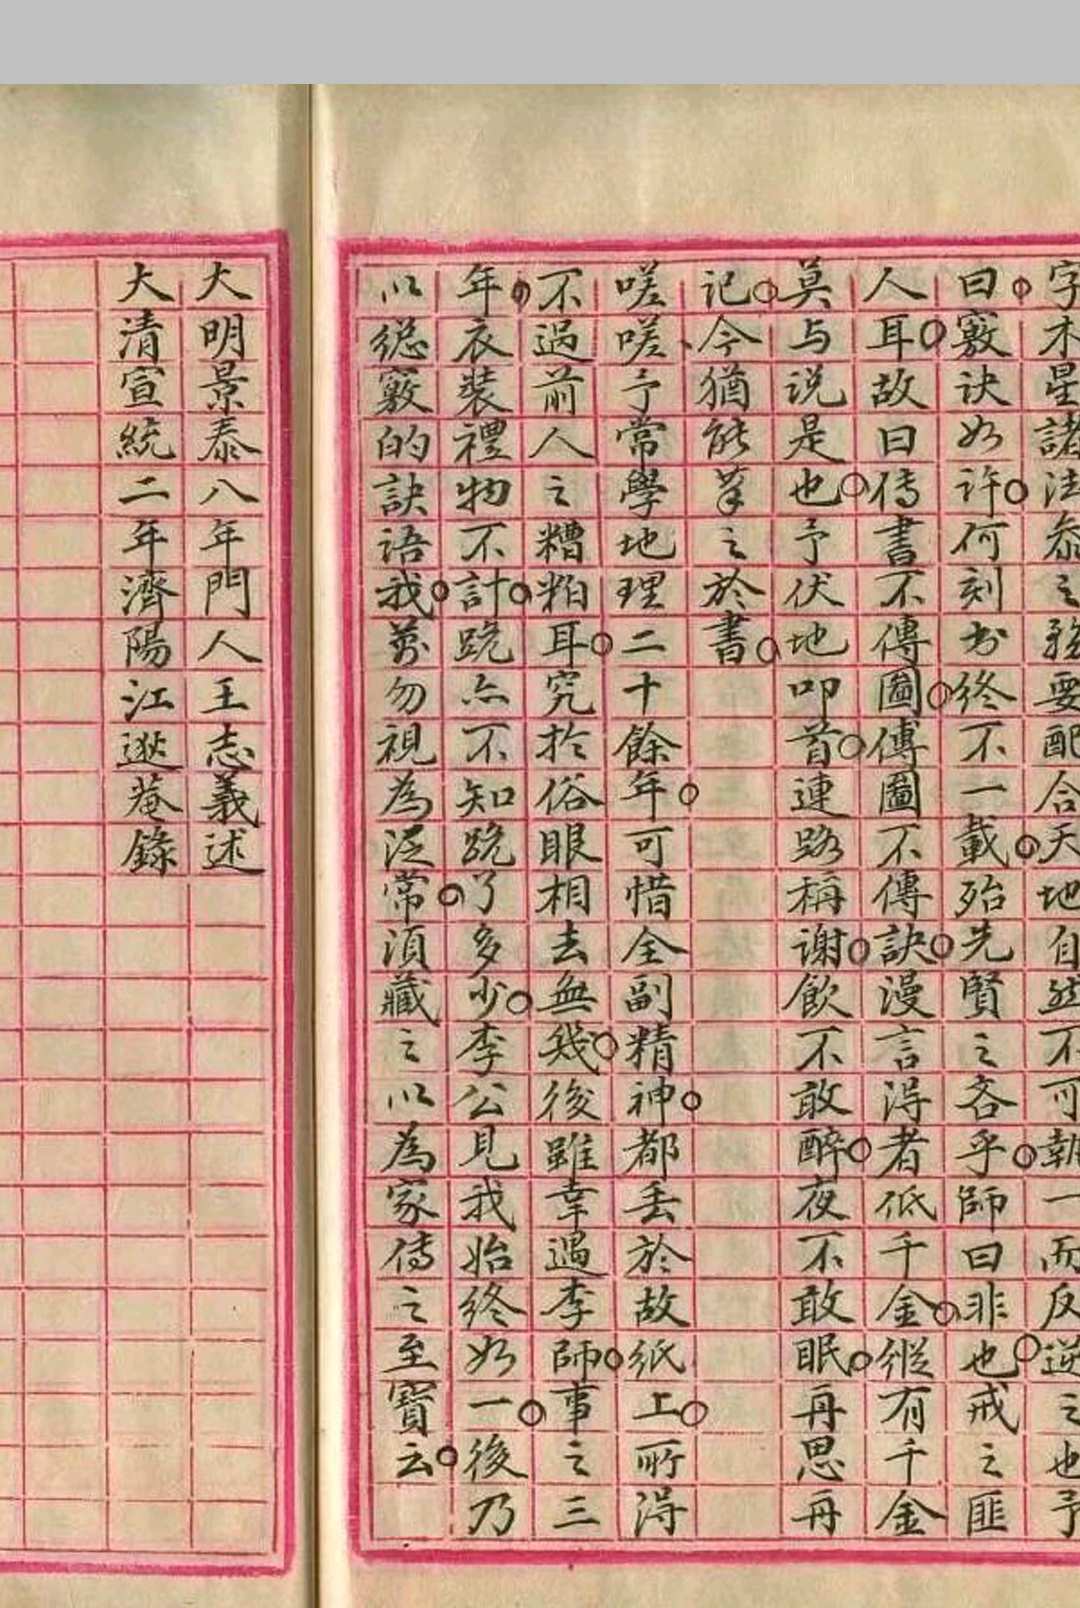 字木星諸法叅之務要配合天地自然不可執一而反逆之也予
曰。竅訣如許。何刻书终不一載。殆先賢之吝乎。師曰非也。戒之匪
人耳。故曰传書不傳圖。傳圖不傳訣。漫言淂者低千金。縱有千金
莫与说是也。予伏地叩首。連路稱谢。飲不敢醉。夜不敢眠。再思再
记。今猶能笔之於書。
嗟嗟、予常學地理二十餘年。可惜全副精神。都丢於故纸上。所淂
不過前人之糟粕耳。究扵俗眼相去無幾。後雖幸遇李師。事之三
年。衣裝禮物不計。跪亦不知跪了多少。李公見我始终如一。後乃
以縂竅的訣語我。萬勿視為泛常。須藏之以為家传之至寶云。
大明景泰八年門人王志義述
大清宣統二年濟陽江逖菴錄